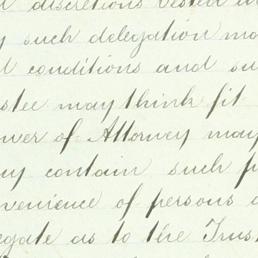 discretions vested
such delegation
conditions and
may think fit
of Attorney may
contain such
venience of persons
egate as to the Trus